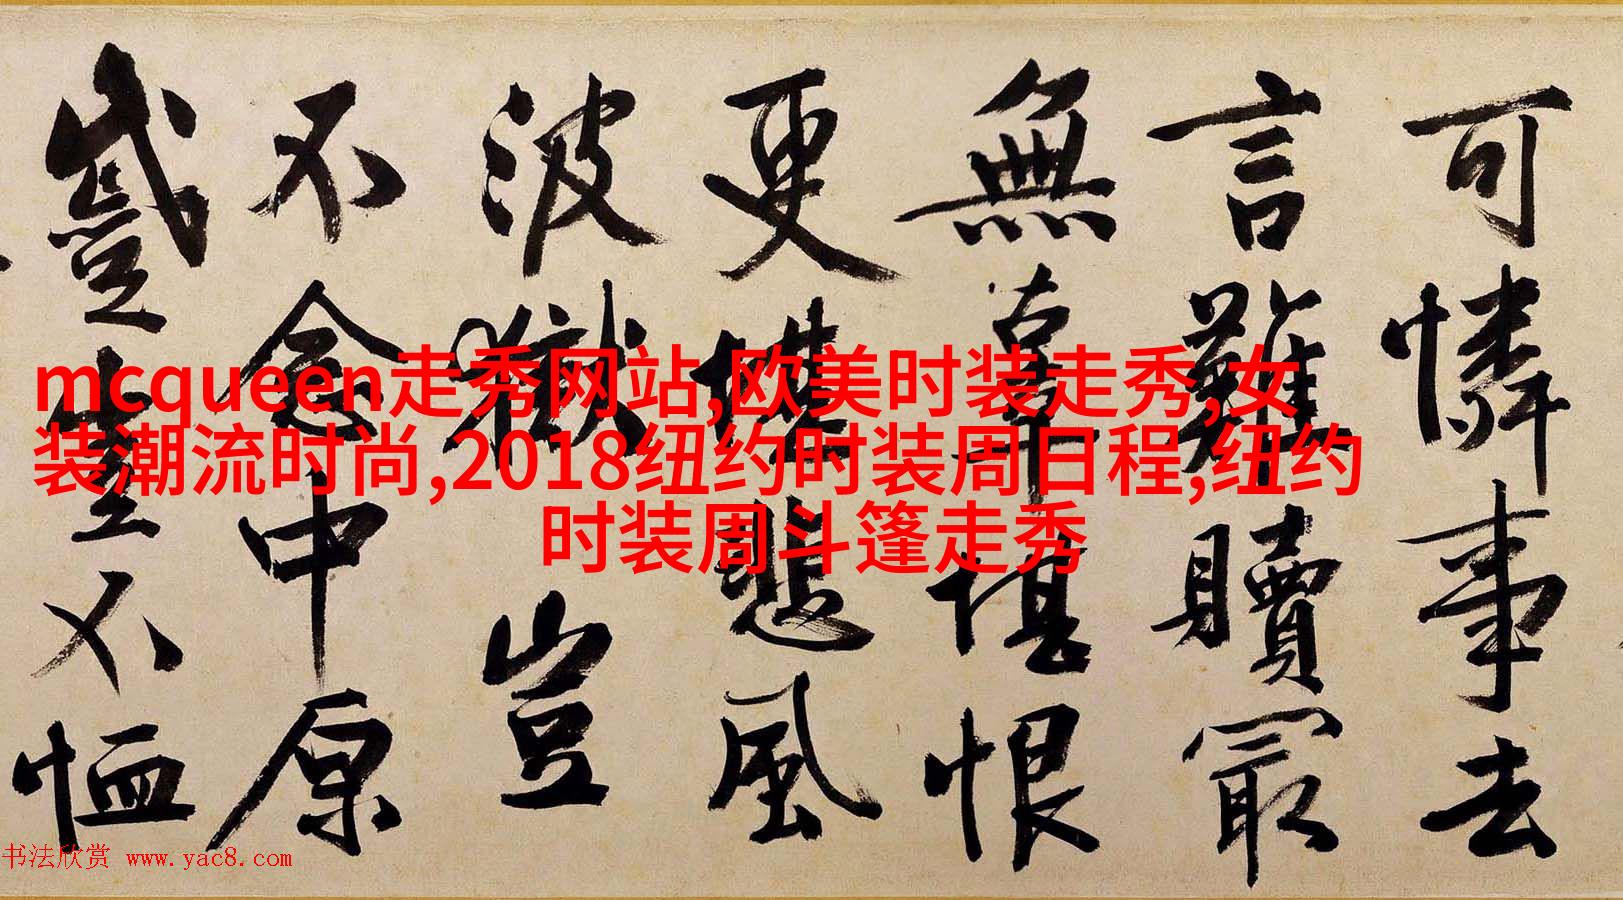 可憐事去
言難贖冣
無辜堪恨
更堪悲風
波獄豈
不念中原
豈不恤
mcqueen走秀网站,欧美时装走秀,女
装潮流时尚,2018纽约时装周日程,纽约
时装周斗篷走秀
书法欣赏 www.yac8.com